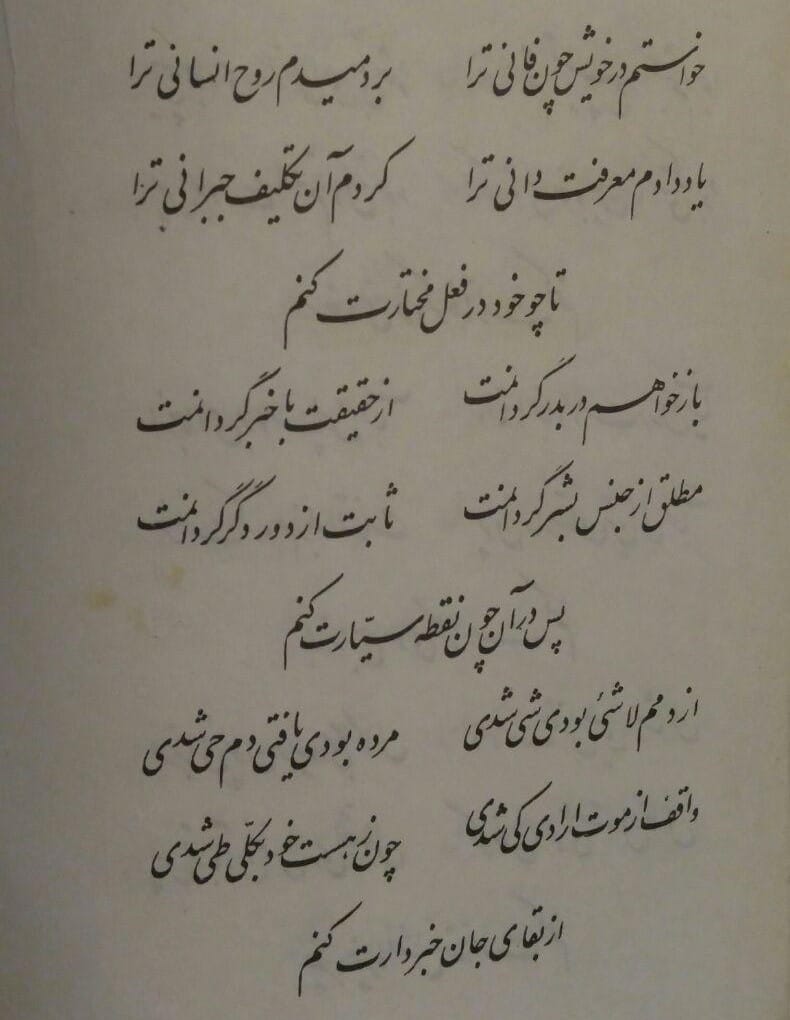 خواستم در خویش چون فانی ترا بر دمیدم روح انسانی ترا
یاد دادم معرفت دانی ترا کردم آن تکلیف جبرانی ترا
تا چو خود در فعل مختارت کنم
باز خواهم در بدر گردانمت از حقیقت با خبر گردانمت
مطلق از جنس بشر گردانمت ثابت از دور دگر گردانمت
پس در آن چون نقطه سیّارت کنم
از دمم لاشئی بودی شی شدی مرده بودی یافتی دم حی شدی
واقف از موت ارادی کی شدی چون ز هست خود بکلّی طی شدی
از بقای جان خبردارت کنم